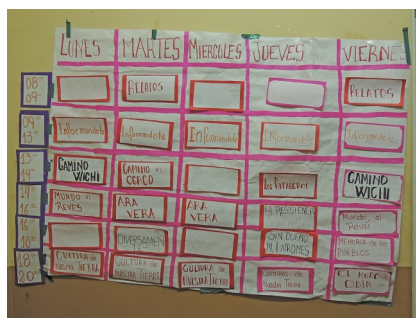 LUNES MARTES MIERCOLES JUEVES VIERNES
08
09
RELATOS RELATOS
09
13
Informandote Informandote Informandote Informandote Informandote
13
14
CAMINO WICHI
CAMINO al CHACO
CAMINO WICHI
14
MUNDO al REVES
ARA VERA
ARA VERA
LA RESISTENCIA
Mundo al Reves
16
18
SIN DUEÑO NI PATRONES
MEMORIA de los PUEBLOS
18
20
CULTURA de Nuestra TIERRA
CULTURA de NUESTRA TIERRA
CULTURA de NUESTRA TIERRA
Nuestra Tierra
EL MURO de ODIN